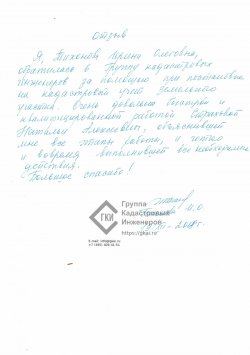 Отзыв
Я, Тихонова Ирина Олеговна,
обратилась в Группу кадастровых
инженеров за помощью при постановке
на кадастровый учет земельного
участка. Очень довольна быстрой и
квалифицированной работой
Натальи Алексеевны, объяснившей
мне все этапы работы, и четко
и вовремя выполнившей все необходимые
действия.
Большое спасибо!
ГКИ
Группа
Кадастровых
Инженеров
https://gkai.ru/
E.mail: info@gkai.ru
И.О.